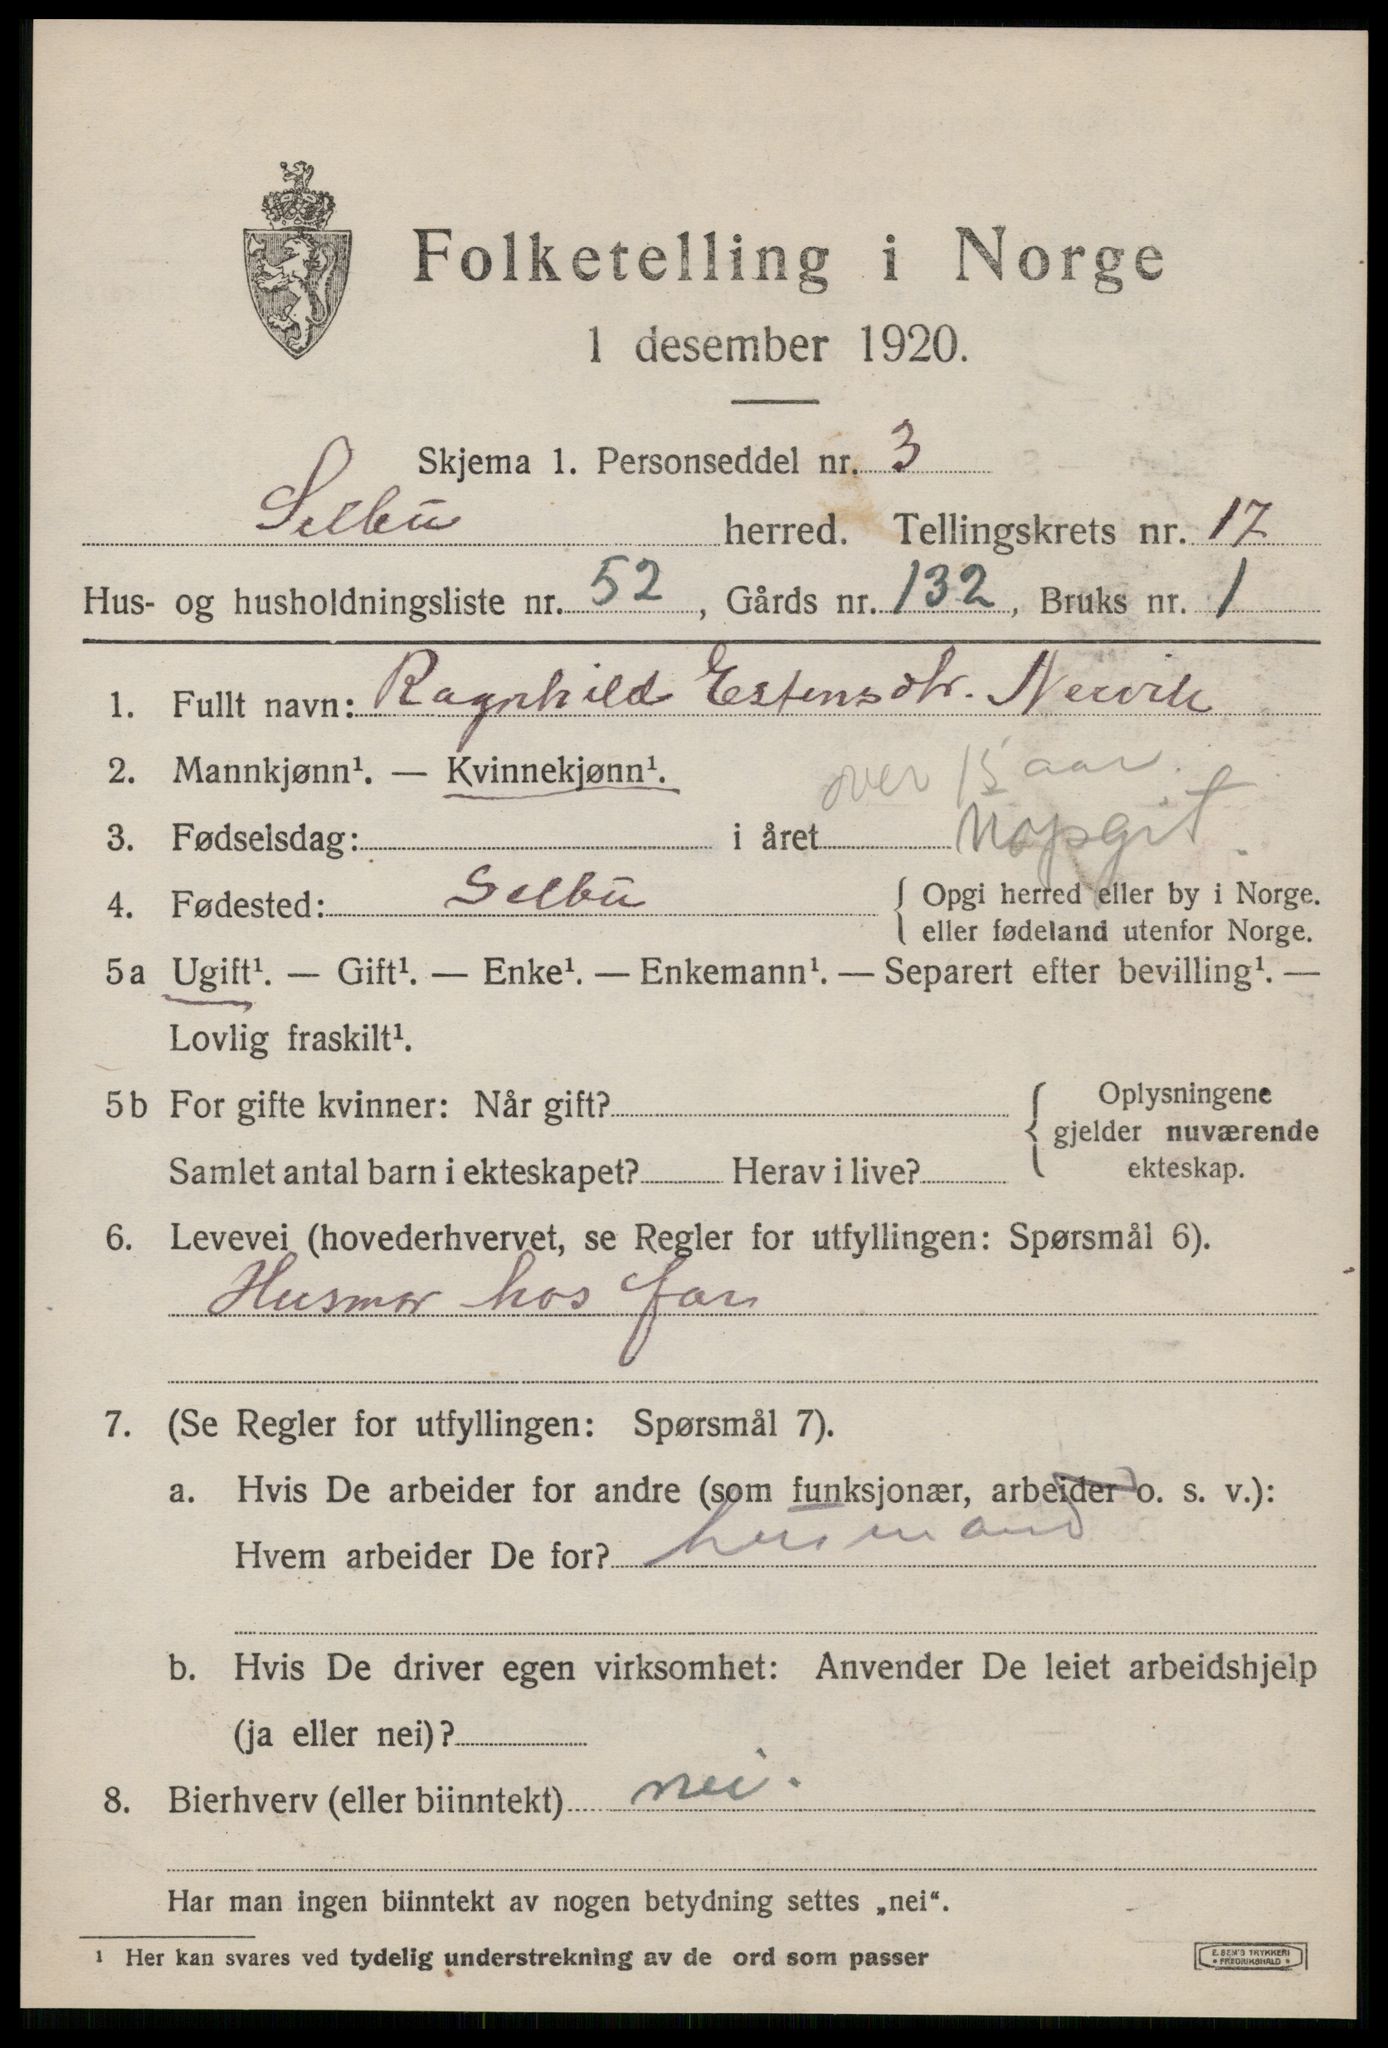 Folketelling i Norge
1 desember 1920.
Skjema 1. Personseddel nr. 3
Selbu herred. Tellingskrets nr. 17
Hus- og husholdningsliste nr. 52, Gårds nr. 132, Bruks nr. 1
1. Fullt navn: Ragnhild Estensdtr. Nervik
2. Mannkjønn¹. — Kvinnekjønn¹.
over 15 aar.
3. Fødselsdag: i året uopgit.
4. Fødested: Selbu { Opgi herred eller by i Norge.
eller fødeland utenfor Norge.
5a Ugift¹. — Gift¹. — Enke¹. — Enkemann¹. — Separert efter bevilling¹. —
Lovlig fraskilt¹.
5b For gifte kvinner: Når gift? { Oplysningene
gjelder nuværende
Samlet antal barn i ekteskapet? Herav i live? ekteskap.
6. Levevei (hovederhvervet, se Regler for utfyllingen: Spørsmål 6).
Husmor hos far
7. (Se Regler for utfyllingen: Spørsmål 7).
a. Hvis De arbeider for andre (som funksjonær, arbeider o. s. v.):
Hvem arbeider De for? husmand
b. Hvis De driver egen virksomhet: Anvender De leiet arbeidshjelp
(ja eller nei)?
8. Bierhverv (eller biinntekt) nei.
Har man ingen biinntekt av nogen betydning settes „nei“.
¹ Her kan svares ved tydelig understrekning av de ord som passer
E. SEM'S TRYKKERI
* FREDRIKSHALD *